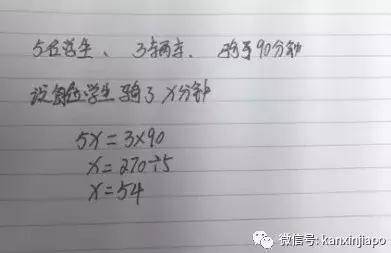 5位学生、3辆车、骑了90分钟
设每位学生骑了X分钟
5X=3×90
X=270÷5
X=54
微信号: kanxinjiapo